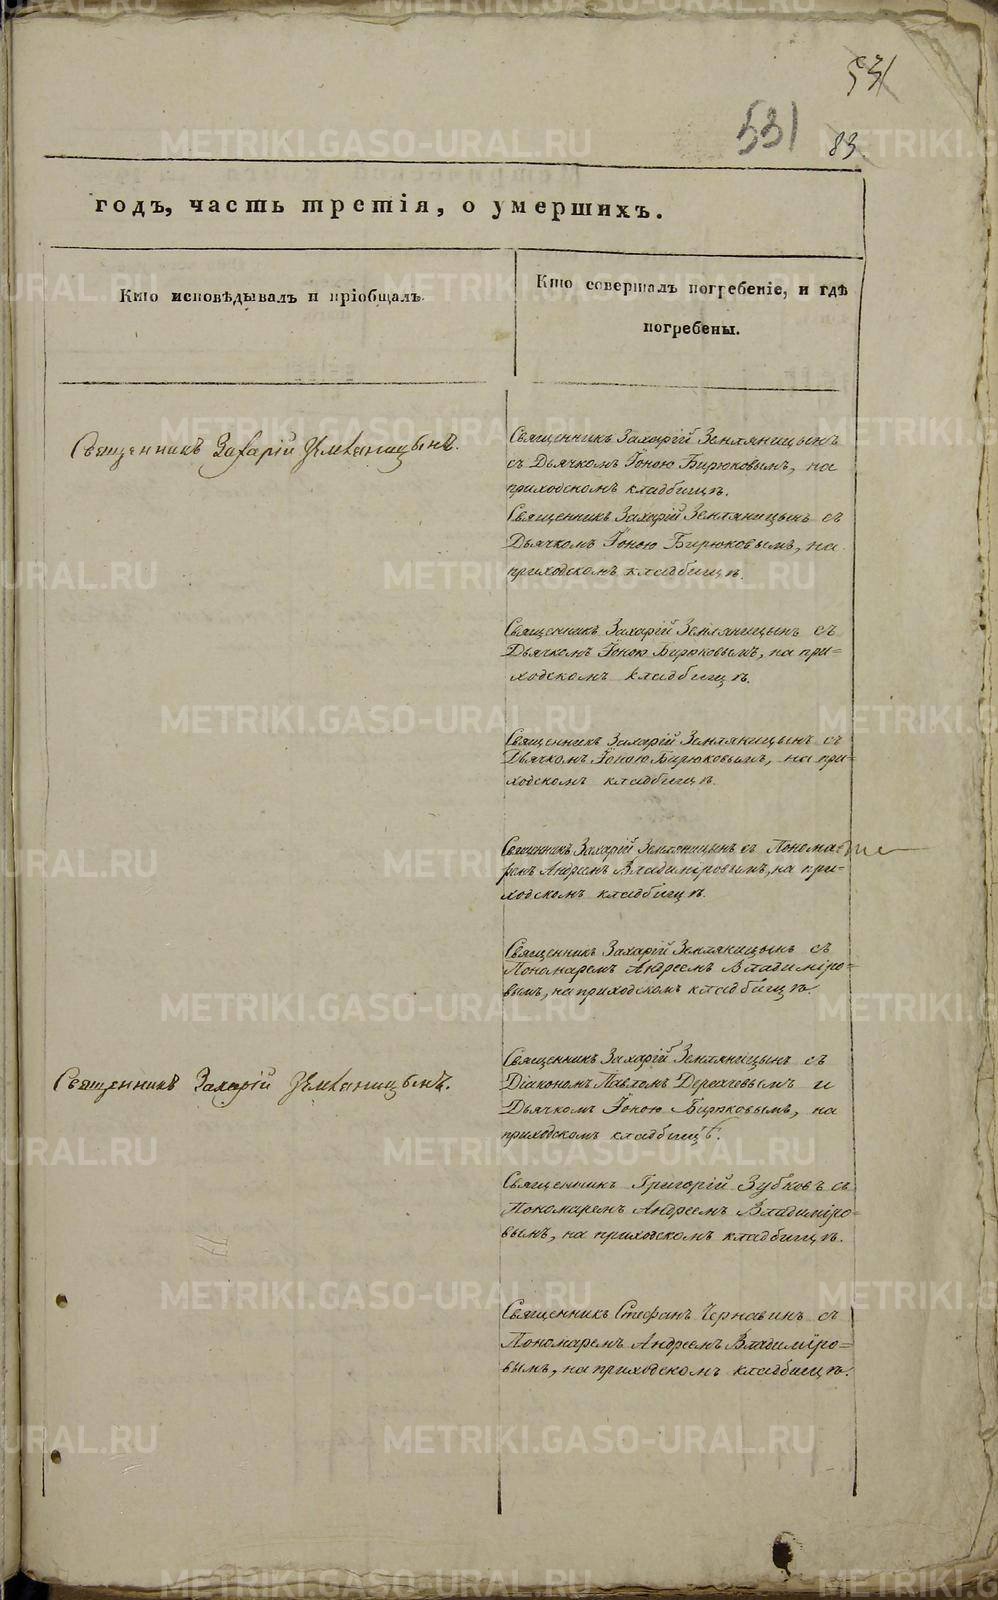 531
531
83
годъ, часть третія, о умершихъ.
Кто исповѣдывалъ и пріобщалъ.
Кто совершалъ погребеніе, и гдѣ
погребены.
Священникъ Захарій Земляницынъ.
Священникъ Захарій Земляницынъ
съ Дьячкомъ Іоною Бирюковымъ, на
приходскомъ кладбищѣ.
Священникъ Захарій Земляницынъ съ
Дьячкомъ Іоною Бирюковымъ, на
приходскомъ кладбищѣ.
Священникъ Захарій Земляницынъ съ
Дьячкомъ Іоною Бирюковымъ, на при=
ходскомъ кладбищѣ.
Священникъ Захарій Земляницынъ съ
Дьячкомъ Іоною Бирюковымъ, на при=
ходскомъ кладбищѣ.
Священникъ Захарій Земляницынъ съ Понома=
ремъ Андреемъ Владиміровымъ, на при=
ходскомъ кладбищѣ.
Священникъ Захарій Земляницынъ съ
Пономаремъ Андреемъ Владиміро=
вымъ, на приходскомъ кладбищѣ.
Священникъ Захарій Земляницынъ.
Священникъ Захарій Земляницынъ съ
Діакономъ Павломъ и
Дьячкомъ Іоною Бирюковымъ, на
приходскомъ кладбищѣ.
Священникъ Григорій Зубковъ съ
Пономаремъ Андреемъ Владиміро=
вымъ, на приходскомъ кладбищѣ.
Священникъ Стефанъ Чернавинъ съ
Пономаремъ Андреемъ Владиміро=
вымъ, на приходскомъ кладбищѣ.
METRIKI.GASO-URAL.RU